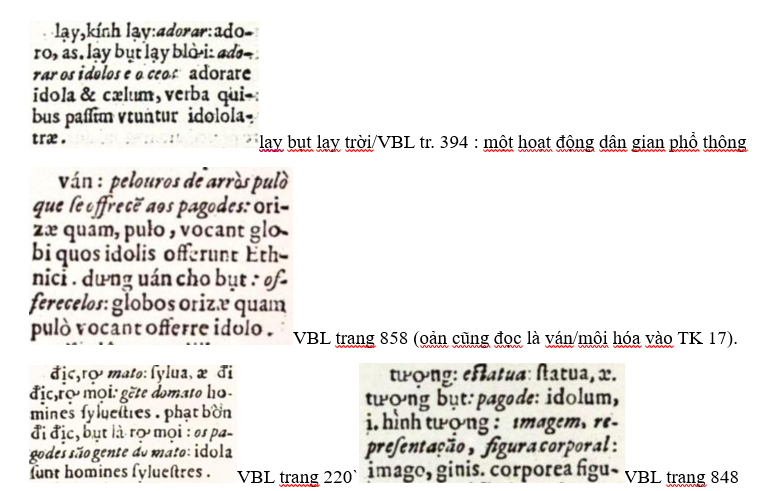 lạy, kính lạy: adorar: ado-
ro, as. lạy bụt lạy blời: ado-
rar os idolos e o ceo: adorare
idola & cælum, verba qui-
bus paſſim vtuntur idolola-
træ.
lạy bụt lạy trời/VBL tr. 394 : một hoạt động dân gian phổ thông
ván: pelouros de arròs pulò
que ſe offrecẽ aos pagodes: ori-
zæ quam, pulo, vocant glo-
bi quos idolis offerunt Eth-
nici. dưng uán cho bụt: of-
ferecelos: globos orizæ quam
pulò vocant offerre idolo.
VBL trang 858 (oản cũng đọc là ván/môi hóa vào TK 17).
địc, rợ mato: ſylua, æ đi
địc, rợ mọi: gẽte do mato ho-
mines ſylueſtres. phạt bờn
đi địc, bụt là rợ mọi: os pa-
godes são gente do mato: idola
ſunt homines ſylueſtres.
VBL trang 220`
tượng: eſtatua: ſtatua, æ.
tượng bụt: pagode: idolum,
i. hình tượng: imagem, re-
preſentação, figura corporal:
imago, ginis. corporea figu-
VBL trang 848